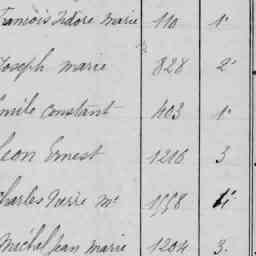 François Isidore Marie 110 1°
Joseph Marie 828 2°
Emile Constant 403 1°
Léon Ernest 1216 3
Charles Pierre Mie 1558 4°
Michel Jean Marie 1204 3.